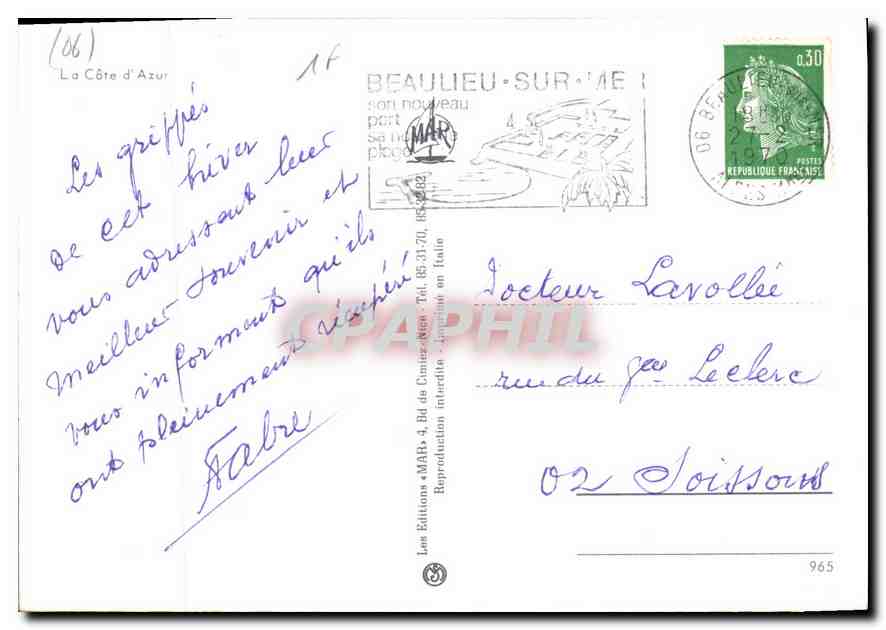 (06)
La Côte d'Azur
1F
Les grippés
de cet hiver
vous adressent leur
meilleur souvenir et
vous informent qu'ils
ont pleinement récupéré
Fabre
BEAULIEU·SUR·ME
son nouveau
port
sa
plage
MAR
06 BEAULIEU
18H
21-2
1970
0,30
POSTES
REPUBLIQUE FRANÇAISE
Les Editions «MAR» 4, Bd de Cimiez-Nice - Tél. 85-31-70, 85-32-82
Reproduction interdite - Imprimé en Italie
CPAPHIL
Docteur Lavollée
rue du Gal Leclerc
02 Soissons
965